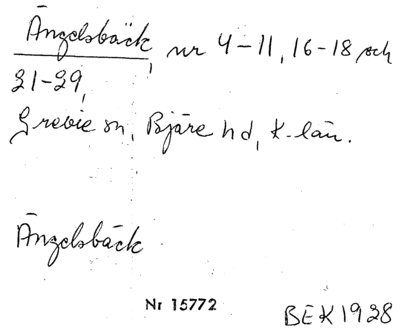 Ängelsbäck, nr 4-11, 16-18 och
21-29,
Grevie sn, Bjäre hd, K-län.
Ängelsbäck
Nr 15772
BEK 1928